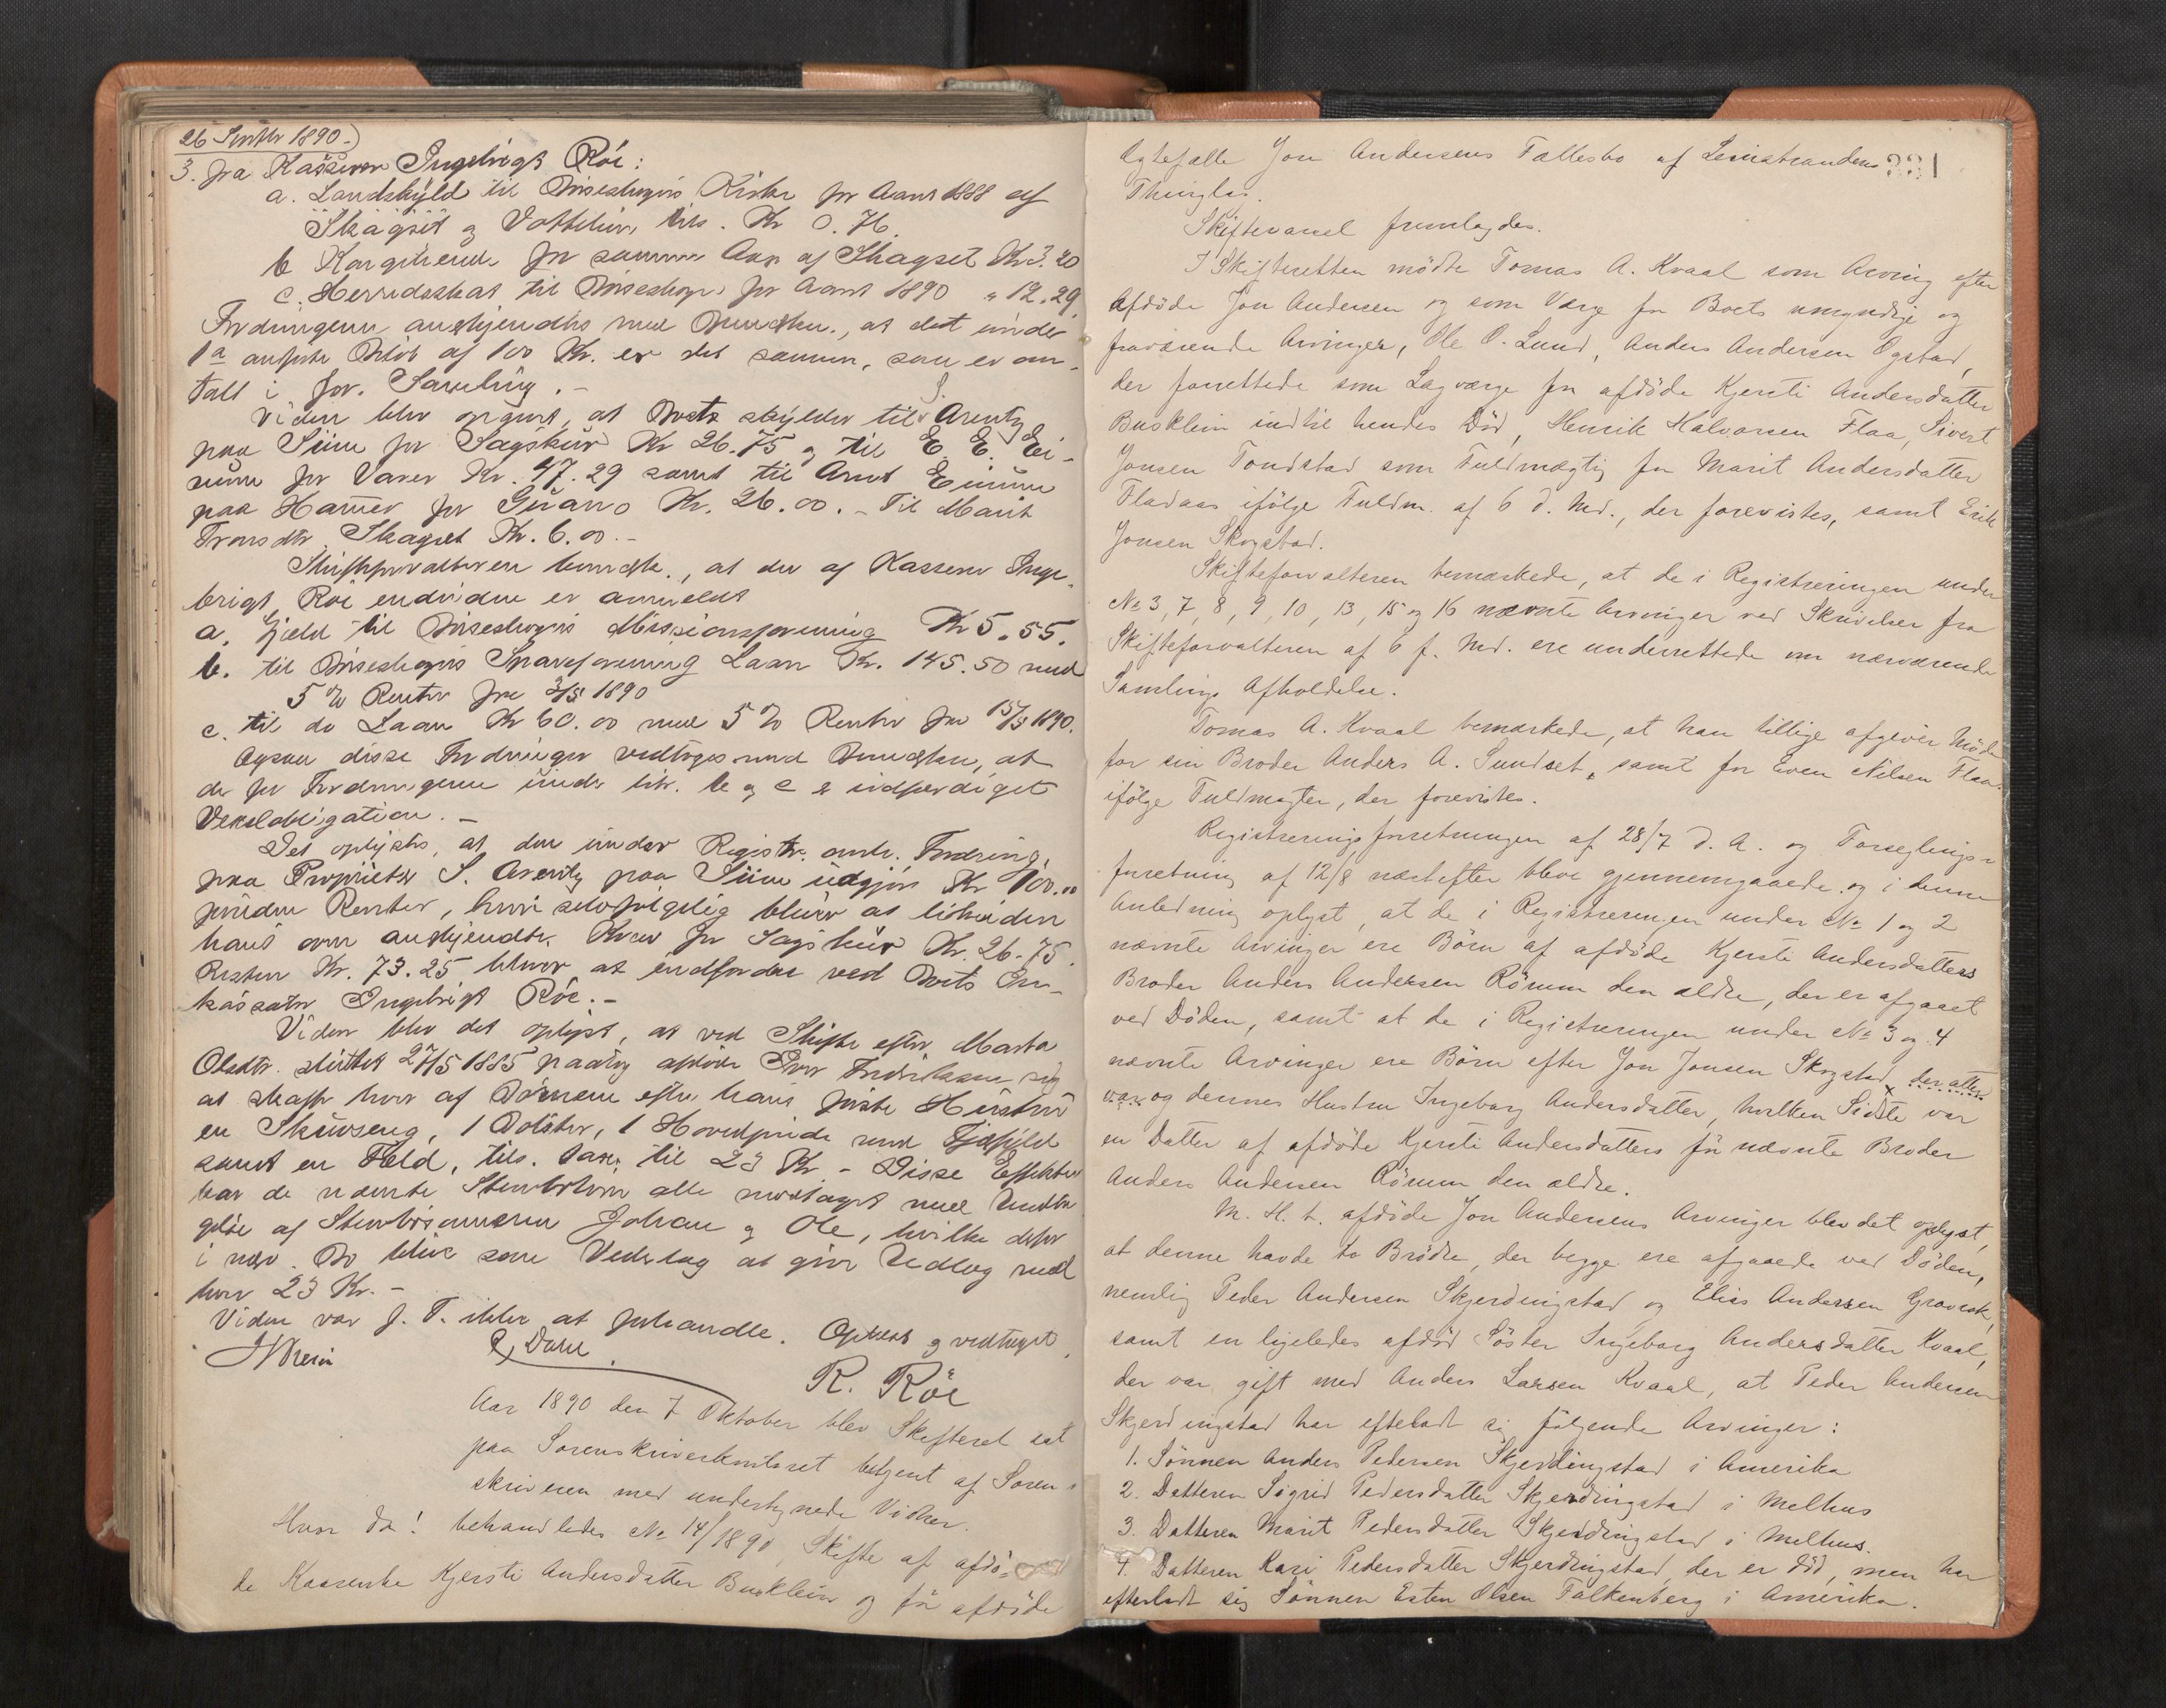 26 Septbr 1890.)
3. fra Kasserer Ingebrigt Röe:
a. Landskyld til Kirke for Aaret 1888 af
Skagset og tils. Kr 0.76.
b for samme Aar af Skagset Kr 3.20
c. Herredsskat til for Aaret 1890 " 12.29
Fordringerne anerkjendtes med Bemærkn., at det under
1a anførte Beløb af 100 Kr. er det samme, som er om-
talt i for. Samling. -
Viden blev opgivet, at Boet skylder til S. Arentz
paa for Sagskur Kr 26.75 og til E. E. Ei-
mme for Varer Kr. 47.29 samt til Arnt
paa Hamer for Guano Kr. 26.00. - Til Marit
Tronsdtr. Skagset Kr. 6.00. -
Skifteforvalteren bemærkede, at der af Kasserer Inge-
brigt Röe endvidere er anmeldt
a. Gjæld til Missionsforening Kr 5.55.
b. til Spareforening Laan Kr. 145.50 med
5 % Renter fra 1890
c. til do Laan Kr 60.00 med 5 % Renter fra 1890.
Ogsaa disse Fordringer vedtoges med Bemærkn., at
der for Fordringerne under litr. b og c er udfærdiget
Vexelobligation. -
Det oplystes, at den under Registr. omh. Fordring
paa Proprietær S. Arentz paa udgjör Kr 100.00
foruden Renter, hvori selvfølgelig bliver at likvidere
hans oven anerkjendte Krav for Sagskur Kr. 26.75.
Resten Kr. 73.25 bliver at indfordre ved Boets In-
kassator Ingebrigt Röe. -
Viden blev det oplyst, at ved Skifte efter Marta
Olsdtr. sluttet 27/5 1885 paatog afdøde sig
at skaffe hver af Börnene efter hans første Hustru
en Skuvseng, 1 Bolster, 1 Hovedpude med Fjærfyld
samt en Fæld, tils. Taxt. til 23 Kr - Disse Effekter
har de nævnte alle modtaget med Undta-
gelse af Johan og Ole, hvilke derfor
i nærv. Bo blive som Vederlag at give Udlæg med
hver 23 Kr. -
Viden var f. T. ikke at forhandle. Oplæst og vedtaget.
R. Röe
Aar 1890 den 7 Oktober blev Skifteret sat
paa Sorenskriverkontoret betjent af Soren-
skriveren med undertegnede Vidner.
Hvor da! behandledes No 14/1890, Skifte af afdö-
de Kaarenke Kjersti Andersdatter Busklein og för afdöde
331
Ægtefælle Jon Andersens Fællesbo af Leinstrandens
Thinglag.
Skiftevarsel fremlagdes.
I Skifteretten mödte Tomas A. Kvaal som Arving efter
Afdöde Jon Andersen og som Værge for Boets umyndige og
fraværende Arvinger, Ole O. Lund, Anders Andersen Ogstad,
der forrettede som Lagværge for afdöde Kjersti Andersdatter
Busklein indtil hendes Död, Henrik Halvorsen Flaa, Sivert
Jonsen Tondstad som Fuldmægtig for Marit Andersdatter
Fladaas ifölge Fuldm. af 6 d. Md., der forevistes, samt Erik
Jonsen Skogstad.
Skifteforvalteren bemærkede, at de i Registreringen under
No 3, 7, 8, 9, 10, 13, 15 og 16 nævnte Arvinger ved Skrivelser fra
Skifteforvalteren af 6 f. Md. ere underrettede om nærværende
Samlings Afholdelse.
Tomas A. Kvaal bemærkede, at han tillige afgiver Möde
for sin Broder Anders A. Sundset, samt for Even Nilsen Flaa
ifölge Fuldmagter, der forevistes.
Registreringsforretningen af 28/7 d. A. og Forseglings-
forretning af 12/8 næstefter bleve gjennemgaaede og i denne
Anledning oplyst, at de i Registreringen under No 1 og 2
nævnte Arvinger ere Börn af afdöde Kjersti Andersdatters
Broder Anders Andersen Römme den ældre, der er afgaaet
ved Döden, samt at de i Registreringen under No 3 og 4
nævnte Arvinger ere Börn efter Jon Jonsen Skogstad, der atter
var og dennes Hustru Ingeborg Andersdatter, hvilken Sidste var
en Datter af afdöde Kjersti Andersdatters för nævnte Broder
Anders Andersen Römme den ældre.
M. H. t. afdöde Jon Andersens Arvinger blev det oplyst,
at denne havde to Brödre, der begge ere afgaaede ved Döden,
nemlig Peder Andersen Skjerdingstad og Elias Andersen Gravrak,
samt en ligeledes afdöd Söster Ingeborg Andersdatter Kvaal,
der var gift med Anders Larsen Kvaal, at Peder Andersen
Skjerdingstad har efterladt sig fölgende Arvinger:
1. Sönnen Anders Pedersen Skjerdingstad i Amerika
2. Datteren Sigrid Pedersdatter Skjerdingstad i Melhus
3. Datteren Marit Pedersdatter Skjerdingstad i Melhus.
4. Datteren Kari Pedersdatter Skjerdingstad, der er död, men har
efterladt sig Sönnen Esten Olsen Falkenberg i Amerika.